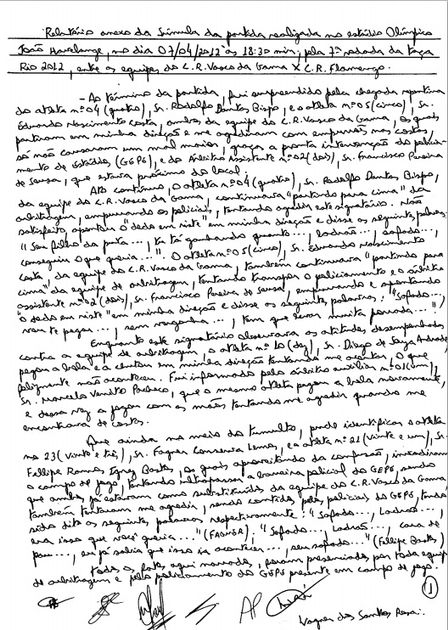 Relatório anexo da Súmula da partida realizada no estádio Olímpico
João Havelange, no dia 07/04/2012 às 18:30 min; pela 7ª rodada da taça
Rio 2012, entre as equipes do C.R. Vasco da Gama X C.R. Flamengo.
- Ao término da partida, fui surpreendido pela chegada repentina
do atleta nº 04 (quatro), Sr. Rodolfo Dantas Bispo, e o atleta nº 05 (cinco), Sr.
Eduardo Nascimento Costa, ambos da equipe do C.R. Vasco da Gama, os quais
partiram em minha direção e me agrediram com empurrões nas costas,
só não causaram um mal maior, graças a pronta intervenção do policia-
mento de Estádios, (GEPE), e do Árbitro Assistente nº 02 (dois), Sr. Francisco Pereira
de Sousa, que estava próximo do local;
Ato contínuo, o atleta nº 04 (quatro), Sr. Rodolfo Dantas Bispo,
da equipe do C.R. Vasco da Gama, continuava "partindo para cima" da
arbitragem, empurrando os policiais, tentando agredir este signatário. Não
satisfeito, apontou o "dedo em riste" em minha direção e disse as seguintes palavras:
"Seu filho da puta..., tá tá ganhando quanto..., ladrão..., safado...,
conseguiu o que queria...". O atleta nº 05 (cinco), Sr. Eduardo Nascimento
Costa, da equipe do C.R. Vasco da Gama, também continuava "partindo para
cima" da equipe de arbitragem, tentando transpor o policiamento e o árbitro
assistente nº 02 (dois), Sr. Francisco Pereira de Sousa, empurrando e apontando
"o dedo em riste" em minha direção e disse as seguintes palavras: "Safado...,
vou te pegar..., sem vergonha..., tem que levar muita porrada..."
Enquanto este signatário observava as atitudes desempenhadas
contra a equipe de arbitragem, o atleta nº 10 (dez), Sr. Diego de Souza Andrade
pegou a bola e a chutou em minha direção tentando me acertar, o que
felizmente não aconteceu. Fui informado pelo árbitro auxiliar nº 01 (um),
Sr. Marcelo Venito Pacheco, que o mesmo atleta pegou a bola novamente,
e dessa vez a jogou com as mãos tentando me agredir quando me
encontrava de costas.
Que ainda no meio do tumulto, pude identificar o atleta
nº 23 (vinte e três), Sr. Fagner Conserva Lemos, e o atleta nº 21 (vinte e um), Sr.
Fellipe Ramos Ignez Bastos, os quais aproveitando da confusão, invadiram
o campo de jogo, tentando ultrapassar a barreira policial do GEPE, sendo
que ambos já estavam como substituídos da equipe do C.R. Vasco da Gama,
também tentaram me agredir, sendo contidos pelos policiais do GEPE, tendo
sido dito as seguintes palavras respectivamente: "Safado..., Ladrão...,
era isso que você queria..." (FAGNER); "Safado..., Ladrão..., cara de
pau..., eu já sabia que isso ia acontecer..., seu safado..." (Fellipe Bastos)
Todos os fatos aqui narrados, foram presenciados por toda equipe
de arbitragem e pelo policiamento do GEPE presente em campo de jogo.
1
Wagner dos Santos Rosa.